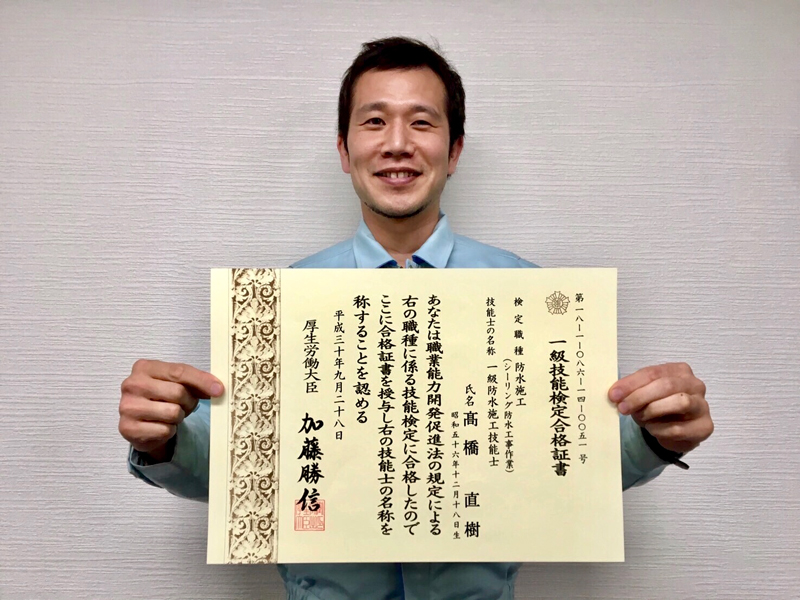 第一八-一-〇八六-一四-〇〇五一号
一級技能検定合格証書
検定職種 防水施工
(シーリング防水工事作業)
技能士の名称 一級防水施工技能士
氏名 髙橋 直樹
昭和五十六年十二月十八日生
あなたは職業能力開発促進法の規定による
右の職種に係る技能検定に合格したので
ここに合格証書を授与し右の技能士の名称を
称することを認める
平成三十年九月二十八日
厚生労働大臣 加藤勝信